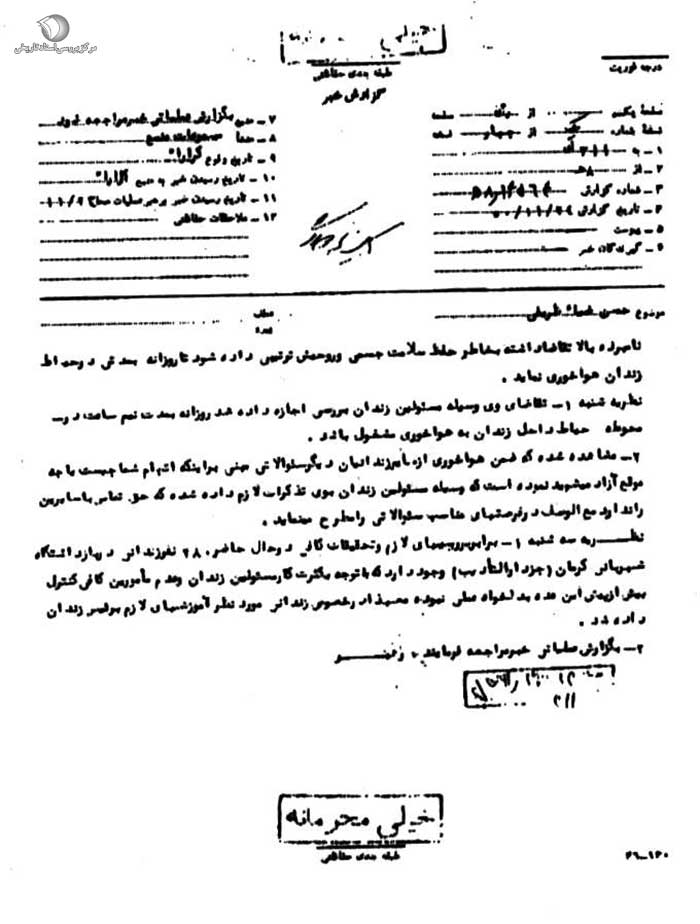 مرکز بررسی اسناد تاریخی
خیلی محرمانه
طبقه بندی حفاظتی
گزارش خبر
درجه فوریت
صفحه یکم از صفحه
نسخه شماره یک از چهار نسخه
۱ـ به ۳۱۱
۲ـ از
۳ـ شماره گزارش
۴ـ تاریخ گزارش
۵ـ پیوست
۶ـ گیرندگان خبر
۷ـ منبع بگزارش عملیاتی خبر مراجعه شود
۸ـ منشا
۹ـ تاریخ وقوع
۱۰ـ تاریخ رسیدن خبر به منبع
۱۱ـ تاریخ رسیدن خبر برهبر عملیات
۱۲ـ ملاحظات حفاظتی
موضوع حسن ضیاء ظریفی
عطف
نامبرده بالا تقاضا داشته بخاطر حفظ سلامت جسمی و روحیش ترتیبی داده شود تا روزانه مدتی در حیاط
زندان هواخوری نماید .
نظریه شنبه ۱ـ تقاضای وی وسیله مسئولین زندان بررسی اجازه داده شد روزانه بمدت نیم ساعت در
محوطه حیاط داخل زندان به هواخوری مشغول باشد .
۲ـ مشاهده شده که ضمن هواخوری از سایر زندانیان دیگر سئوالاتی مبنی براینکه اتهام شما چیست یا چه
موقع آزاد میشوید نموده است که وسیله مسئولین زندان بوی تذکرات لازم داده شده که حق تماس با سایرین
را ندارد مع الوصف در فرصتهای مناسب سئوالاتی را مطرح مینماید .
نظریه سه شنبه ۱ـ برابر بررسیهای لازم و تحقیقات کافی در حال حاضر ۲۸ نفر زندانی در بازداشتگاه
شهربانی کرمان (جزء دارالتأدیب) وجود دارد که با توجه بکثرت کار مسئولین زندان وعدم مأمورین کافی کنترل
بیش از پیش این عده بدلخواه عملی نبوده معهذا در خصوص زندانی مورد نظر آموزشهای لازم برئیس زندان
داده شد .
۲ـ بگزارش عملیاتی خبر مراجعه فرمایند .
۳۱۱
خیلی محرمانه
طبقه بندی حفاظتی
۲۶ـ۱۳۰